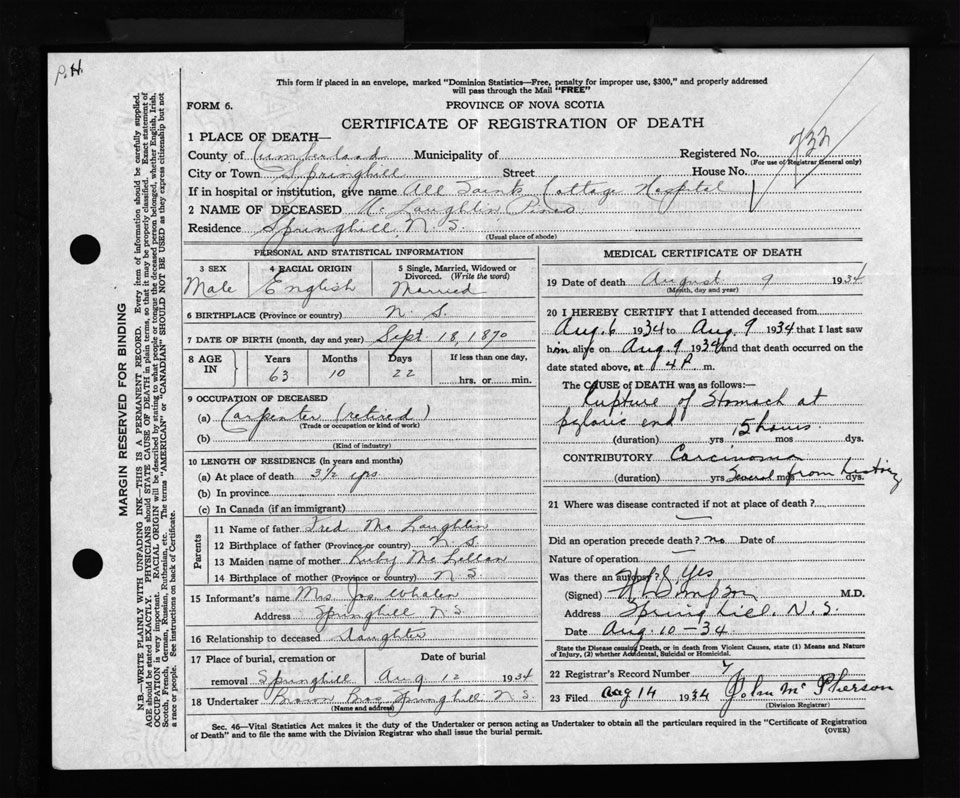 P.H.
This form if placed in an envelope, marked "Dominion Statistics—Free, penalty for improper use, $300," and properly addressed
will pass through the Mail "FREE"
FORM 6.
PROVINCE OF NOVA SCOTIA
CERTIFICATE OF REGISTRATION OF DEATH
1 PLACE OF DEATH—
County of Cumberland Municipality of Registered No. 732
(For use of Registrar General only)
City or Town Springhill Street House No.
If in hospital or institution, give name All Saints Cottage Hospital
2 NAME OF DECEASED McLaughlin
Residence Springhill, N. S.
(Usual place of abode)
PERSONAL AND STATISTICAL INFORMATION
3 SEX 4 RACIAL ORIGIN 5 Single, Married, Widowed or Divorced. (Write the word)
Male English Married
6 BIRTHPLACE (Province or country) N. S.
7 DATE OF BIRTH (month, day and year) Sept 18, 1870
8 AGE IN Years Months Days If less than one day,
63 10 22 hrs. or min.
9 OCCUPATION OF DECEASED
(a) Carpenter (retired)
(Trade or occupation or kind of work)
(b)
(Kind of industry)
10 LENGTH OF RESIDENCE (in years and months)
(a) At place of death 3½ yrs
(b) In province
(c) In Canada (if an immigrant)
Parents
11 Name of father Fred McLaughlin
12 Birthplace of father (Province or country) N. S.
13 Maiden name of mother Ruby McLellan
14 Birthplace of mother (Province or country) N S
15 Informant's name Mrs. Jos Whalen
Address Springhill N S.
16 Relationship to deceased daughter
17 Place of burial, cremation or removal Date of burial
Springhill Aug 12 1934
18 Undertaker Brown Bros, Springhill N. S.
(Name and address)
MEDICAL CERTIFICATE OF DEATH
19 Date of death August 9 1934
(Month, day and year)
20 I HEREBY CERTIFY that I attended deceased from
Aug. 6 1934 to Aug. 9 1934 that I last saw
him alive on Aug. 9 1934 and that death occurred on the
date stated above, at 4 P. m.
The CAUSE of DEATH was as follows:—
Rupture of Stomach at
pyloric end 15 hours.
(duration) yrs mos dys.
CONTRIBUTORY Carcinoma
(duration) yrs Several mos from history dys.
21 Where was disease contracted if not at place of death?
—
Did an operation precede death? no Date of
Nature of operation —
Was there an autopsy? Yes
(Signed) Simpson M.D.
Address Springhill, N. S.
Date Aug. 10-34
State the Disease causing Death, or in death from Violent Causes, state (1) Means and Nature
of Injury, (2) whether Accidental, Suicidal or Homicidal.
22 Registrar's Record Number
23 Filed Aug 14 1934 John McPherson
(Division Registrar)
Sec. 46—Vital Statistics Act makes it the duty of the Undertaker or person acting as Undertaker to obtain all the particulars required in the "Certificate of Registration
of Death" and to file the same with the Division Registrar who shall issue the burial permit.
(OVER)
MARGIN RESERVED FOR BINDING
N.B.—WRITE PLAINLY WITH UNFADING INK—THIS IS A PERMANENT RECORD. Every item of information should be carefully supplied.
AGE should be stated EXACTLY. PHYSICIANS should STATE CAUSE OF DEATH in plain terms, so that it may be properly classified. Exact statement of
OCCUPATION is very important. RACIAL ORIGIN will be described by stating to what people or tongue the deceased person belonged, whether English, Irish,
Scotch, French, German, Russian, Ruthenian, etc. The terms "AMERICAN" or "CANADIAN" SHOULD NOT BE USED as they express citizenship but not
a race or people. See instructions on back of Certificate.